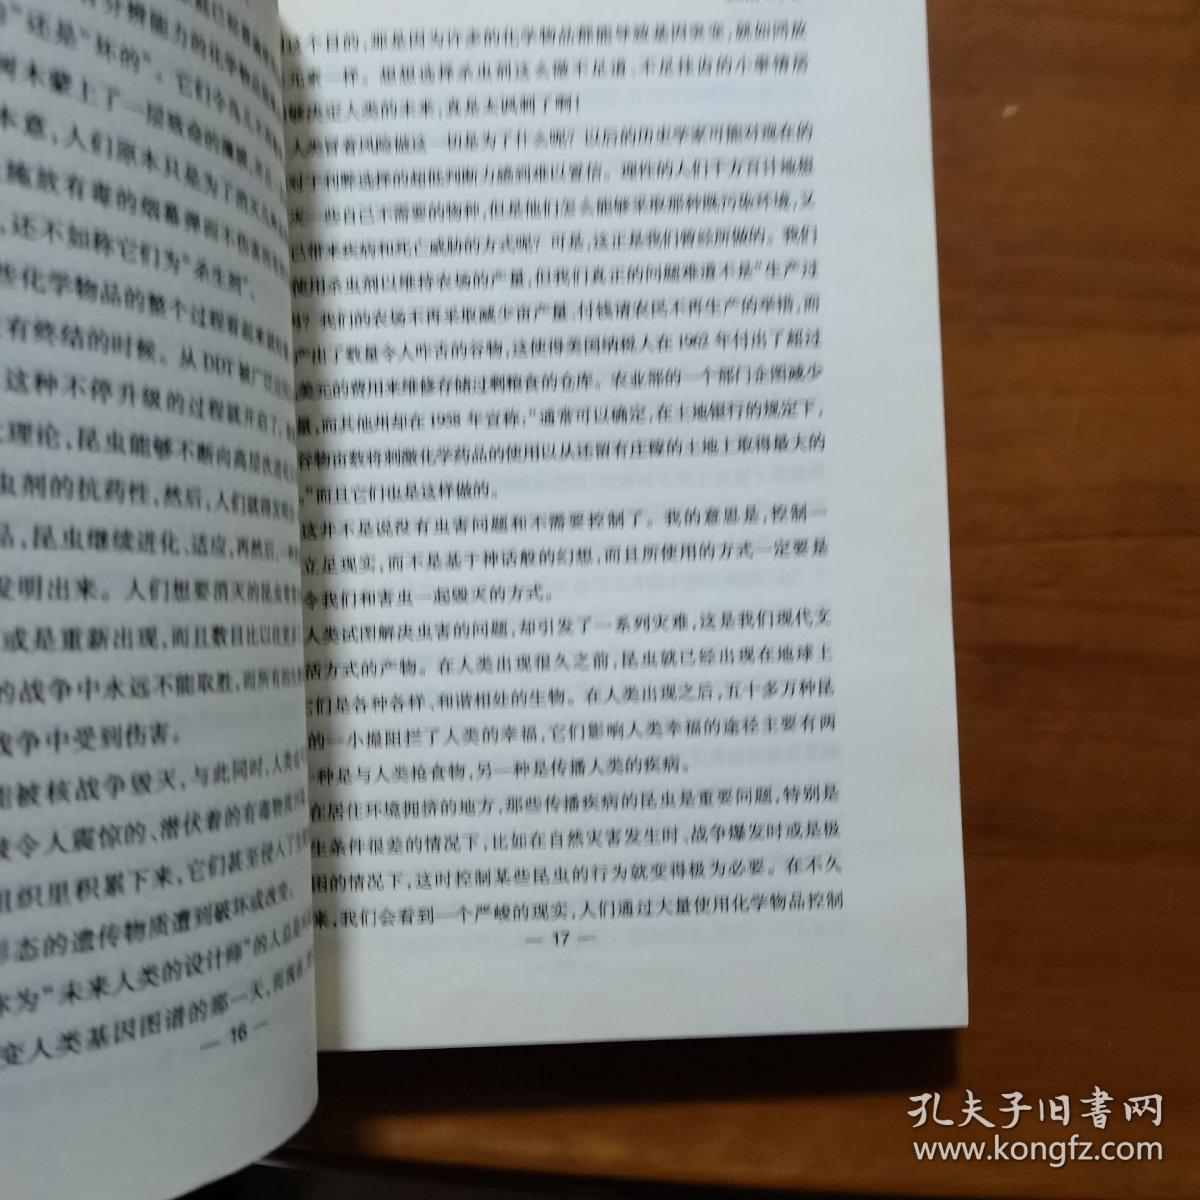 "还是"坏的"。它们令鸟儿不再
树木蒙上了一层致命的薄膜
本意,人们原本只是为了消灭几种
施放有毒的烟幕弹而不伤害所有
,还不如称它们为"杀生剂"。
些化学物品的整个过程看起来就好像
有终结的时候。从 DDT 被广泛应用
这种不停升级的过程就开启了
理论,昆虫能够不断向高层次进化
虫剂的抗药性,然后,人们就得发明
品,昆虫继续进化、适应,再然后,一种
发明出来。人们想要消灭的昆虫
或是重新出现,而且数目比以往更
的战争中永远不能取胜,而所有的
战争中受到伤害。
能被核战争毁灭,与此同时,人类
令人震惊的、潜伏着的有毒物质
组织里积累下来,它们甚至侵入了
形态的遗传物质遭到破坏或改变。
称为"未来人类的设计师"的人总是
变人类基因图谱的那一天,而
— 16 —
这个目的,那是因为许多的化学物品都能导致基因突变,就如同放
元素一样。想想选择杀虫剂这么微不足道、不足挂齿的小事情居
够决定人类的未来,真是太讽刺了啊!
人类冒着风险做这一切是为了什么呢?以后的历史学家可能对现在的
对于利弊选择的超低判断力感到难以置信。理性的人们千方百计地想
灭一些自己不需要的物种,但是他们怎么能够采取那种既污染环境,又
己带来疾病和死亡威胁的方式呢?可是,这正是我们曾经所做的。我们
使用杀虫剂以维持农场的产量,但我们真正的问题难道不是"生产过
吗?我们的农场不再采取减少亩产量、付钱请农民不再生产的举措,而
产出了数量令人咋舌的谷物,这使得美国纳税人在 1962 年付出了超过
美元的费用来维修存储过剩粮食的仓库。农业部的一个部门企图减少
量,而其他州却在 1958 年宣称:"通常可以确定,在土地银行的规定下,
谷物亩数将刺激化学药品的使用以从还留有庄稼的土地上取得最大的
。"而且它们也是这样做的。
这并不是说没有虫害问题和不需要控制了。我的意思是,控制一
立足现实,而不是基于神话般的幻想,而且所使用的方式一定要是
令我们和害虫一起毁灭的方式。
人类试图解决虫害的问题,却引发了一系列灾难,这是我们现代文
活方式的产物。在人类出现很久之前,昆虫就已经出现在地球上
它们是各种各样、和谐相处的生物。在人类出现之后,五十多万种昆
的一小撮阻拦了人类的幸福,它们影响人类幸福的途径主要有两
一种是与人类抢食物,另一种是传播人类的疾病。
在居住环境拥挤的地方,那些传播疾病的昆虫是重要问题,特别是
生条件很差的情况下,比如在自然灾害发生时、战争爆发时或是极
困的情况下,这时控制某些昆虫的行为就变得极为必要。在不久
来,我们会看到一个严峻的现实,人们通过大量使用化学物品控制
— 17 —
孔夫子旧書网
www.kongfz.com